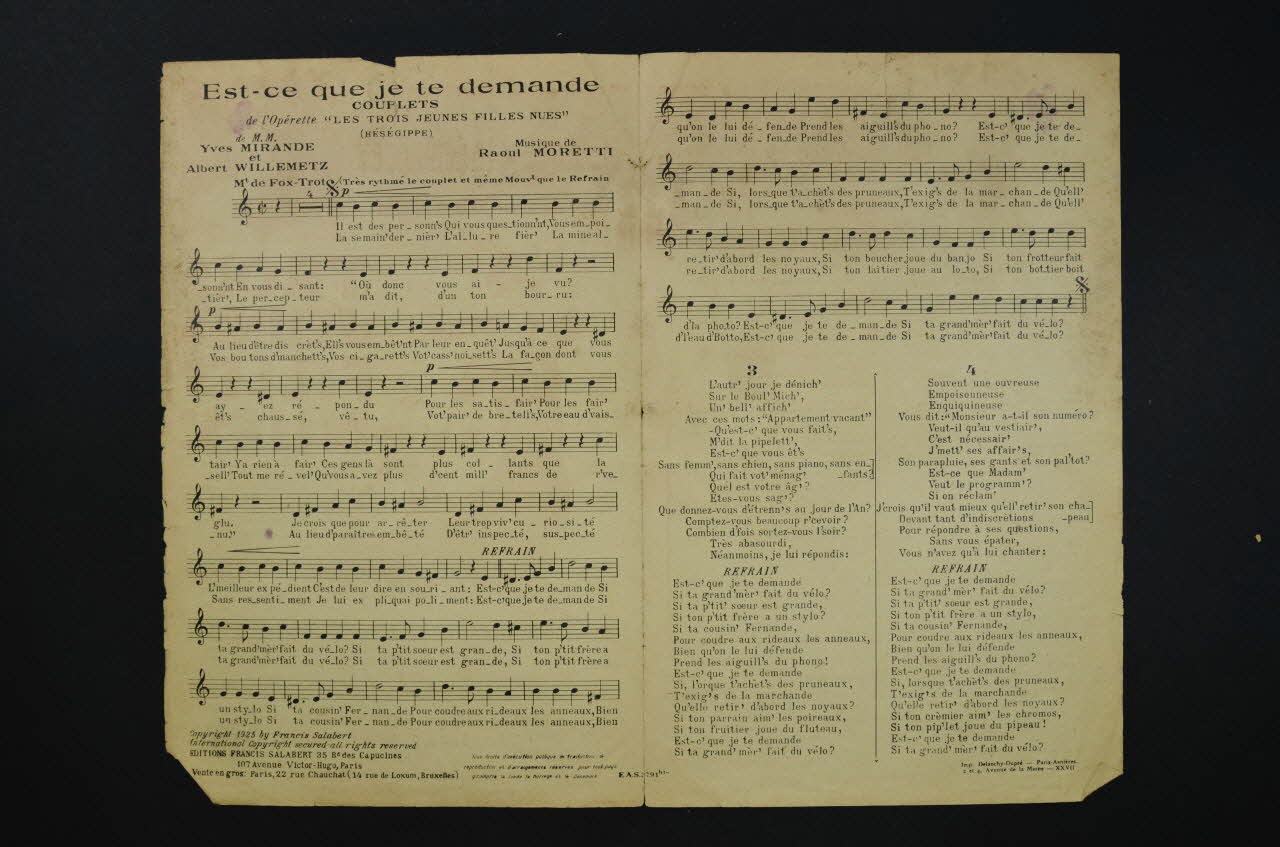 Est-ce que je te demande
COUPLETS
de l'Opérette "LES TROIS JEUNES FILLES NUES"
(HÉSÉGIPPE)
de M.M.
Yves MIRANDE
et
Albert WILLEMETZ
Musique de
Raoul MORETTI
Mt de Fox-Trot (Très rythmé le couplet et même Mouvt que le Refrain
p
4
Il est des per_sonn's Qui vous ques_tionn'nt, Vous em_poi_
La semain' der_nièr' L'al_lu_re fièr' La mine al_
_sonn'nt En vous di_sant: "Où donc vous ai_je vu?
_tièr', Le per_cep_teur m'a dit, d'un ton bour_ru:
p
Au lieu d'être dis crèt's, Ell's vous em_bêt'nt Par leur en_quêt' Jusqu'à ce que vous
Vos bou tons d'manchett's, Vos ci_garett's Vot' cass' noi_sett's La fa_çon dont vous
p
ay_ez ré_pon_du Pour les sa_tis_fair' Pour les fair'
êt's chaus_sé, vê_tu, Vot' pair' de bre_tell's, Votre eau d'vais_
tair' Ya rien à fair' Ces gens là sont plus col_lants que la
_sell' Tout me ré_vel' Qu'vous a_vez plus d'cent mill' francs de r've_
glu. Je crois que pour ar_rê_ter Leur trop viv' cu_rio_si_té
_nu." Au lieu d'paraître em_bê_té D'êtr' inspec_té, sus_pec_té
REFRAIN
L'meilleur ex pé_dient C'est de leur dire en sou_ri_ant: Est-c' que je te de_man de Si
Sans res_sen ti_ment Je lui ex pli_quai po_li_ment: Est-c' que je te de_man de Si
ta grand'mèr' fait du vé_lo? Si ta p'tit' sœur est gran_de, Si ton p'tit frère a
ta grand'mèr' fait du vé_lo? Si ta p'tit' sœur est gran_de, Si ton p'tit frère a
un sty_lo Si ta cousin' Fer_nan_de Pour coudre aux ri_deaux les anneaux, Bien
un sty_lo Si ta cousin' Fer_nan_de Pour coudre aux ri_deaux les anneaux, Bien
Copyright 1925 by Francis Salabert
International Copyright secured all rights reserved
EDITIONS FRANCIS SALABERT 35 Bd des Capucines
107 Avenue Victor-Hugo, Paris
Vente en gros: Paris, 22 rue Chauchat (14 rue de Loxum, Bruxelles)
Tous droits d'exécution publique de traduction de
reproduction et d'arrangements réservés pour tout pays
y compris la Suède la Norvège et le Danemark
E.A.S.
qu'on le lui dé_fen_de Prend les aiguill's du pho_no? Est-c' que je te de_
qu'on le lui dé_fen_de Prend les aiguill's du pho_no? Est-c' que je te de_
_man_de Si, lors_que t'a_chèt's des pruneaux, T'exig's de la mar_chan de Qu'ell'
_man_de Si, lors_que t'a_chèt's des pruneaux, T'exig's de la mar_chan de Qu'ell'
re_tir' d'abord les noyaux, Si ton boucher joue du banjo Si ton frotteur fait
re_tir' d'abord les noyaux, Si ton laitier joue au lo_to, Si ton bottier boit
d'la pho_to? Est-c' que je te de_man_de Si ta grand'mèr' fait du vé_lo?
d'l'eau d'Botto, Est-c' que je te de_man_de Si ta grand'mèr' fait du vé_lo?
3
L'autr' jour je dénich'
Sur le Boul' Mich',
Un' bell' affich'
Avec ces mots: "Appartement vacant"
-Qu'est-c' que vous fait's,
M'dit la pipelett',
Est-c' que vous êt's
Sans femm', sans chien, sans piano, sans en_
_fants?
Qui fait vot' ménag'
Quel est votre âg'?
Etes-vous sag'?
Que donnez-vous d'étrenn's au jour de l'An?
Comptez-vous beaucoup r'cevoir?
Combien d'fois sortez-vous l'soir?
Très abasourdi,
Néanmoins, je lui répondis:
REFRAIN
Est-c' que je te demande
Si ta grand' mèr' fait du vélo?
Si ta p'tit' sœur est grande,
Si ton p'tit frère a un stylo?
Si ta cousin' Fernande,
Pour coudre aux rideaux les anneaux,
Bien qu'on le lui défende
Prend les aiguill's du phono!
Est-c' que je te demande
Si, l'orque t'achèt's des pruneaux,
T'exig's de la marchande
Qu'elle retir' d'abord les noyaux?
Si ton parrain aim' les poireaux,
Si ton fruitier joue du fluteau,
Est-c' que je te demande
Si ta grand' mèr' fait du vélo?
4
Souvent une ouvreuse
Empoisonneuse
Enquiquineuse
Vous dit: "Monsieur a-t-il son numéro?
Veut-il qu'au vestiair',
C'est nécessair'
J'mett' ses affair's,
Son parapluie, ses gants et son pal'tot?
Est-ce que Madam'
Veut le programm'?
Si on réclam'
J'crois qu'il vaut mieux qu'ell' retir' son cha_
_peau
Devant tant d'indiscrétions
Pour répondre à ses questions,
Sans vous épater,
Vous n'avez qu'à lui chanter:
REFRAIN
Est-c' que je te demande
Si ta grand' mèr' fait du vélo?
Si ta p'tit' sœur est grande,
Si ton p'tit frère a un stylo,
Si ta cousin' Fernande,
Pour coudre aux rideaux les anneaux,
Bien qu'on le lui défende
Prend les aiguill's du phono?
Est-c' que je te demande
Si, lorsque t'achèt's des pruneaux,
T'exig's de la marchande
Qu'elle retir' d'abord les noyaux?
Si ton crémier aim' les chromos,
Si ton pip'let joue du pipeau!
Est-c' que je te demande
Si ta grand' mèr' fait du vélo?
Imp. Delanchy-Dupré — Paris-Asnières.
2 et 4, Avenue de la Marne — XXVII